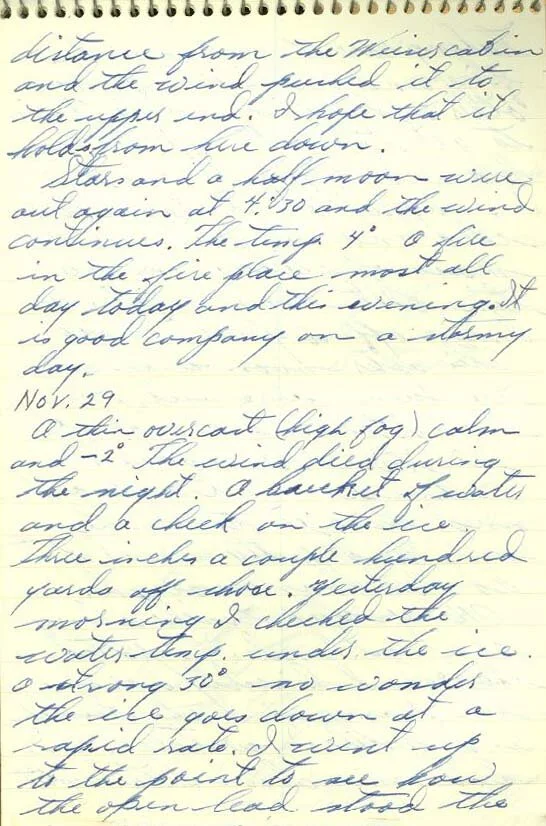 distance from the Weiser cabin
and the wind pushed it to
the upper end. I hope that it
holds from here down.
Stars and a half moon were
out again at 4:30 and the wind
continues. The temp. 4° A fire
in the fire place most all
day today and this evening. It
is good company on a stormy
day.
Nov. 29
A thin overcast (high fog) calm
and -2° The wind died during
the night. A bucket of water
and a check on the ice.
Three inches a couple hundred
yards off shore. Yesterday
morning I checked the
water temp. under the ice.
A strong 30° no wonder
the ice goes down at a
rapid rate. I went up
to the point to see how
the open lead stood the